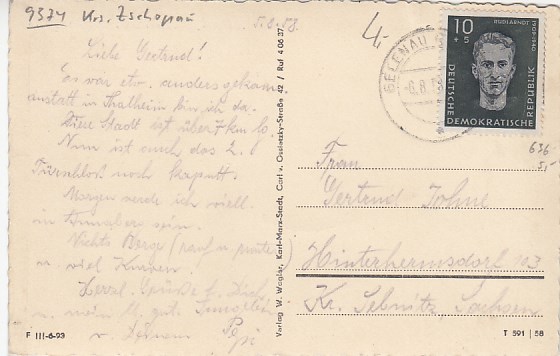 9374 Krs. Zschopau
5.8.58.
4,-
Liebe Gertrud!
Es war etw. anders gekom.
anstatt in Thalheim bin ich da.
Diese Stadt ist über 7 km lg.
Nun ist auch das 2.
Türschloß noch kaputt.
Morgen werde ich viell.
in Annaberg sein.
Nichts Berge (rauf u. runter)
u. viel Kurven.
Herzl. Grüße f. Dich
u. m. gut.
v. Deinem
F III-6-93
Verlag W. Wagler, Karl-Marx-Stadt, Carl v. Ossietzky-Straße 42 / Ruf 4 06 37
GELENAU
-6.8.58
10
+5
RUDI ARNDT
1909-1940
DEUTSCHE
DEMOKRATISCHE
REPUBLIK
636
5,-
Frau
Gertrud Johne
Hinterhermsdorf 103
Kr. Sebnitz Sachsen
T 591 | 58